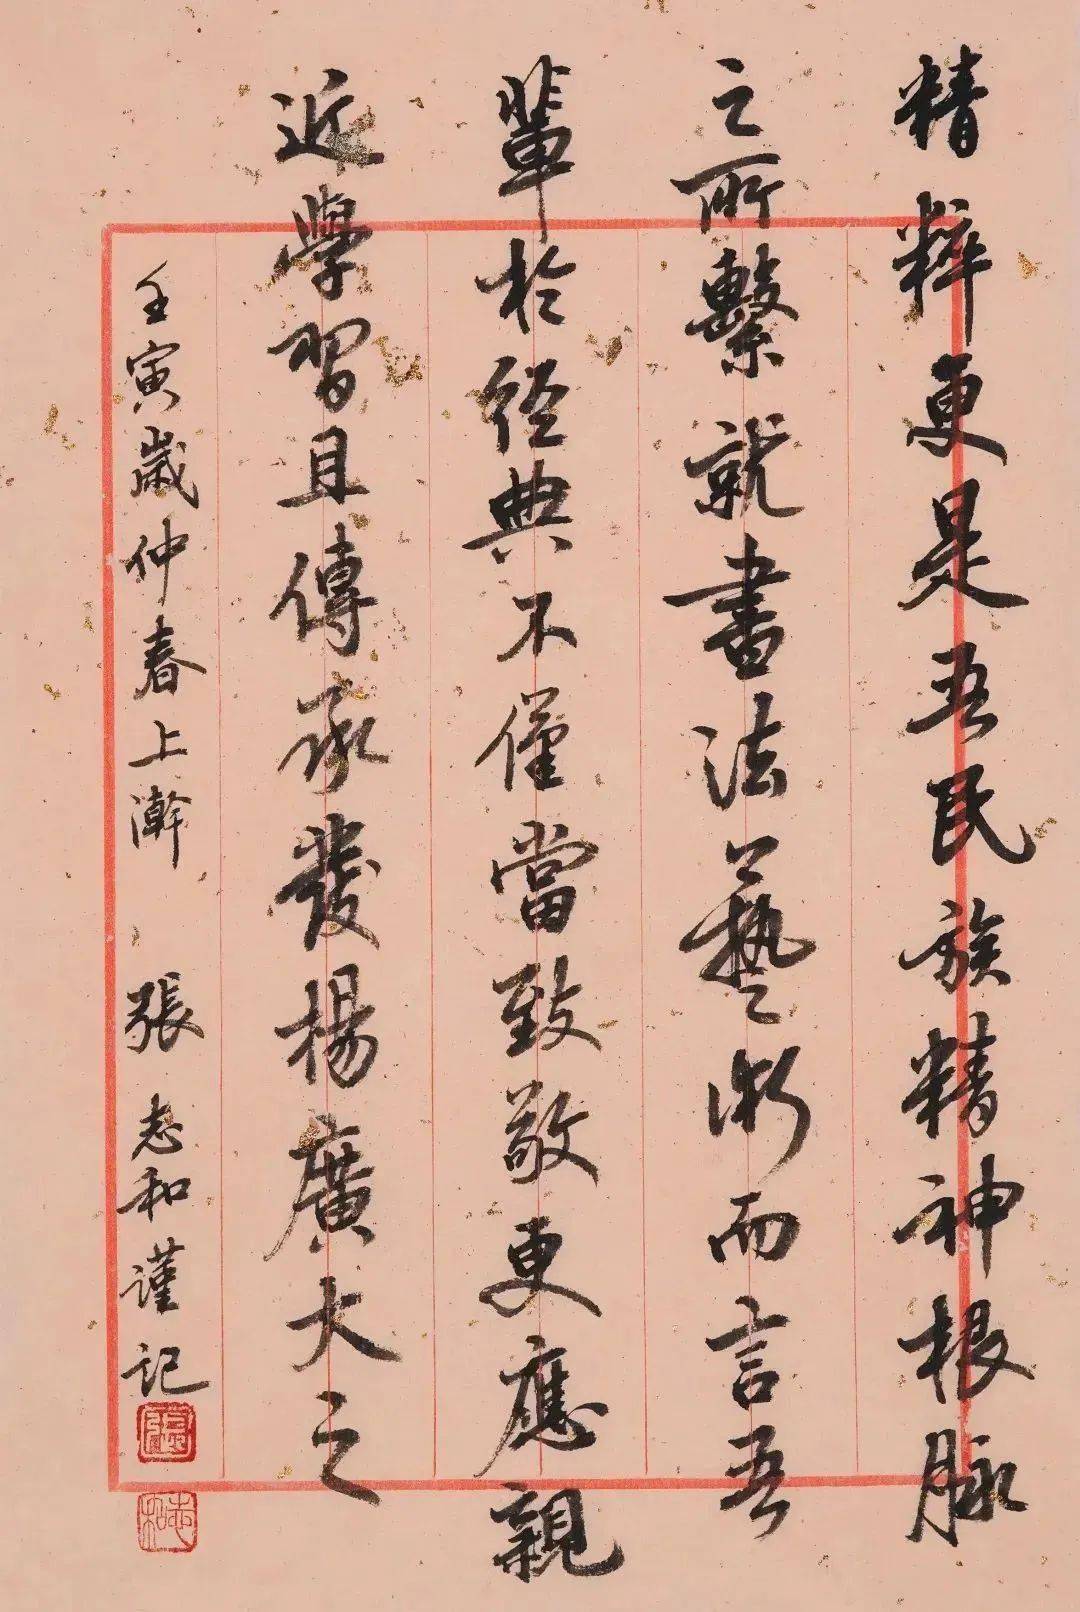 精粹更是吾民族精神根脉
之所繫就書法藝術而言吾
輩於經典不僅當致敬更應親
近學習且傳承發楊廣大之
壬寅歲仲春上澣 張志和謹記
張
志和